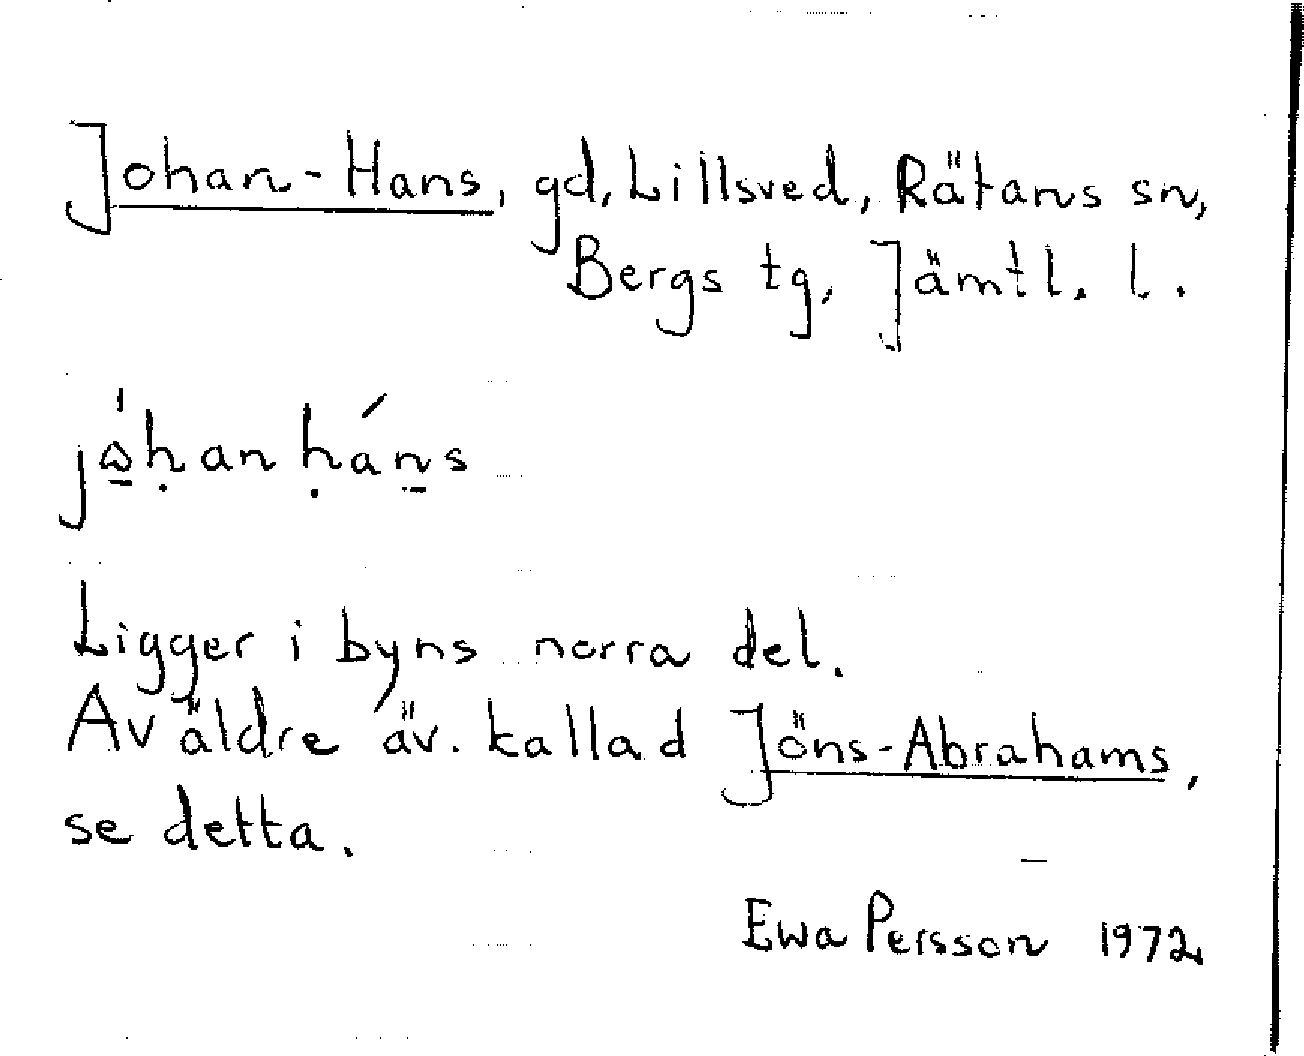 Johan-Hans, gd, Lillsved, Rätans sn,
Bergs tg, Jämtl. l.
Ligger i byns norra del.
Av äldre äv. kallad Jöns-Abrahams,
se detta.
Ewa Persson 1972